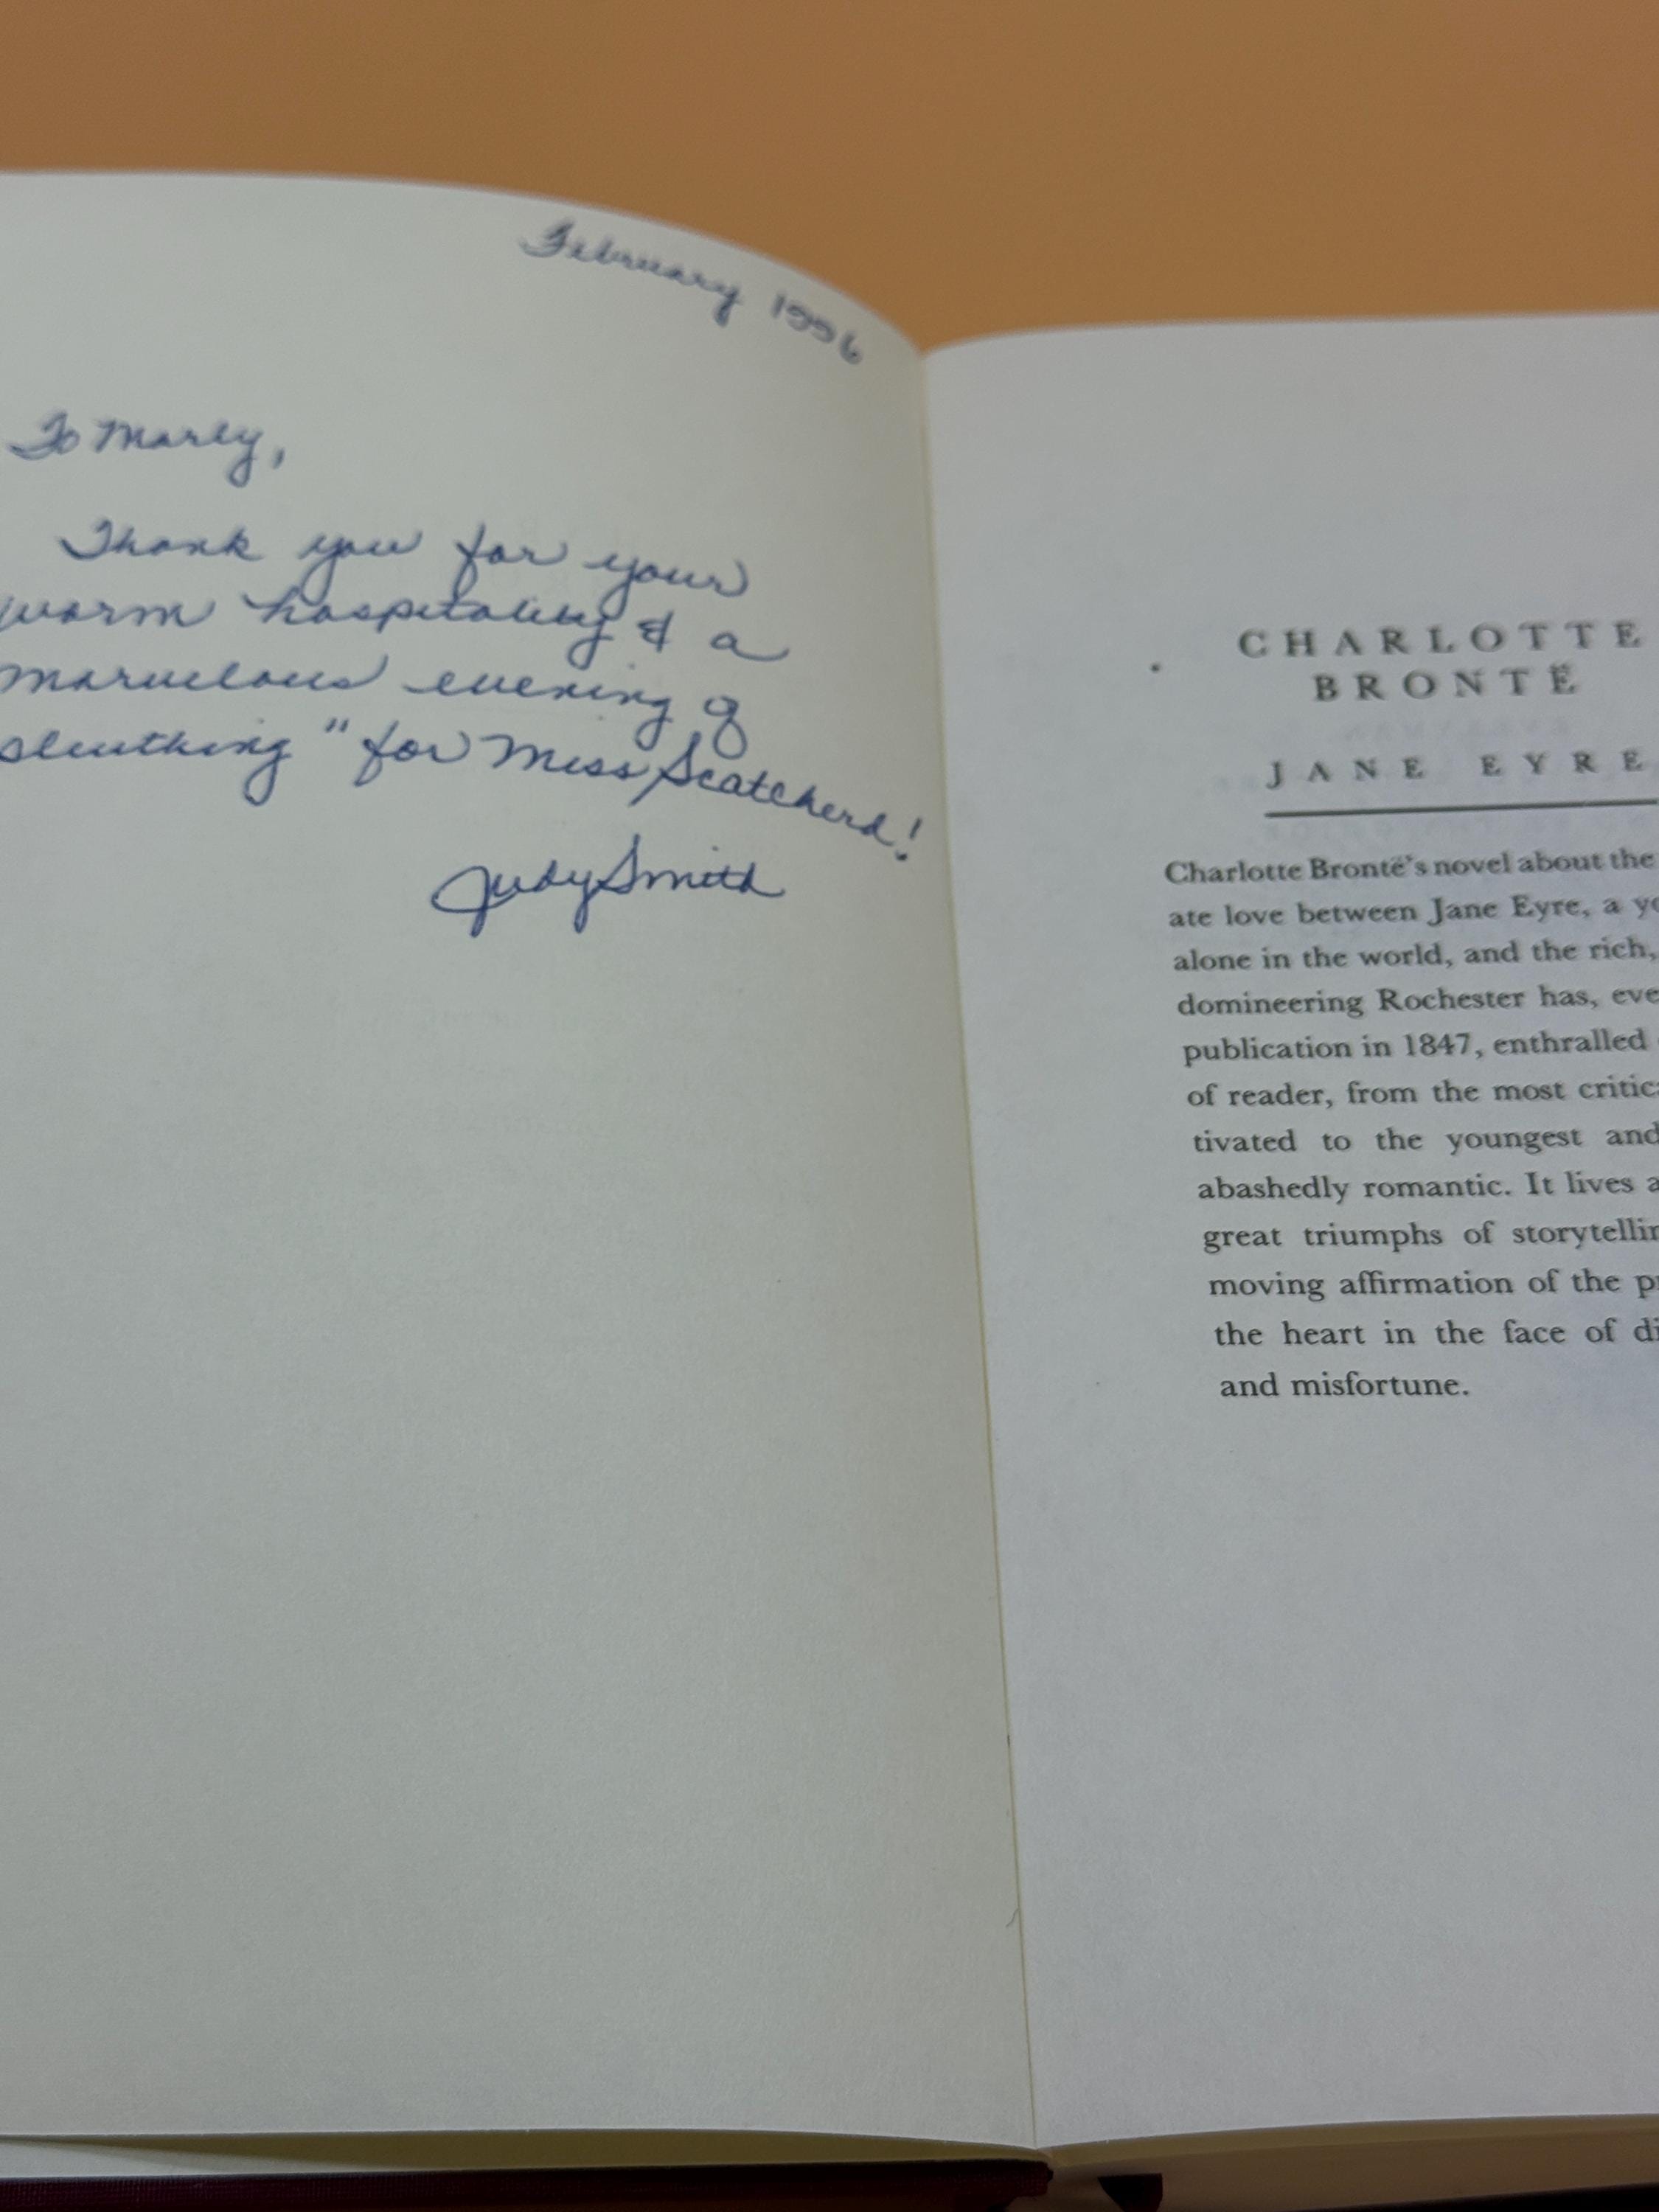 February 1996
To Marly,
Thank you for your
warm hospitality & a
marvelous evening of
sleuthing" for Miss Scatcherd!
Judy Smith
CHARLOTTE
BRONTË
JANE EYRE
Charlotte Brontë's novel about the
ate love between Jane Eyre, a yo
alone in the world, and the rich,
domineering Rochester has, eve
publication in 1847, enthralled
of reader, from the most critic
tivated to the youngest and
abashedly romantic. It lives a
great triumphs of storytellin
moving affirmation of the p
the heart in the face of di
and misfortune.